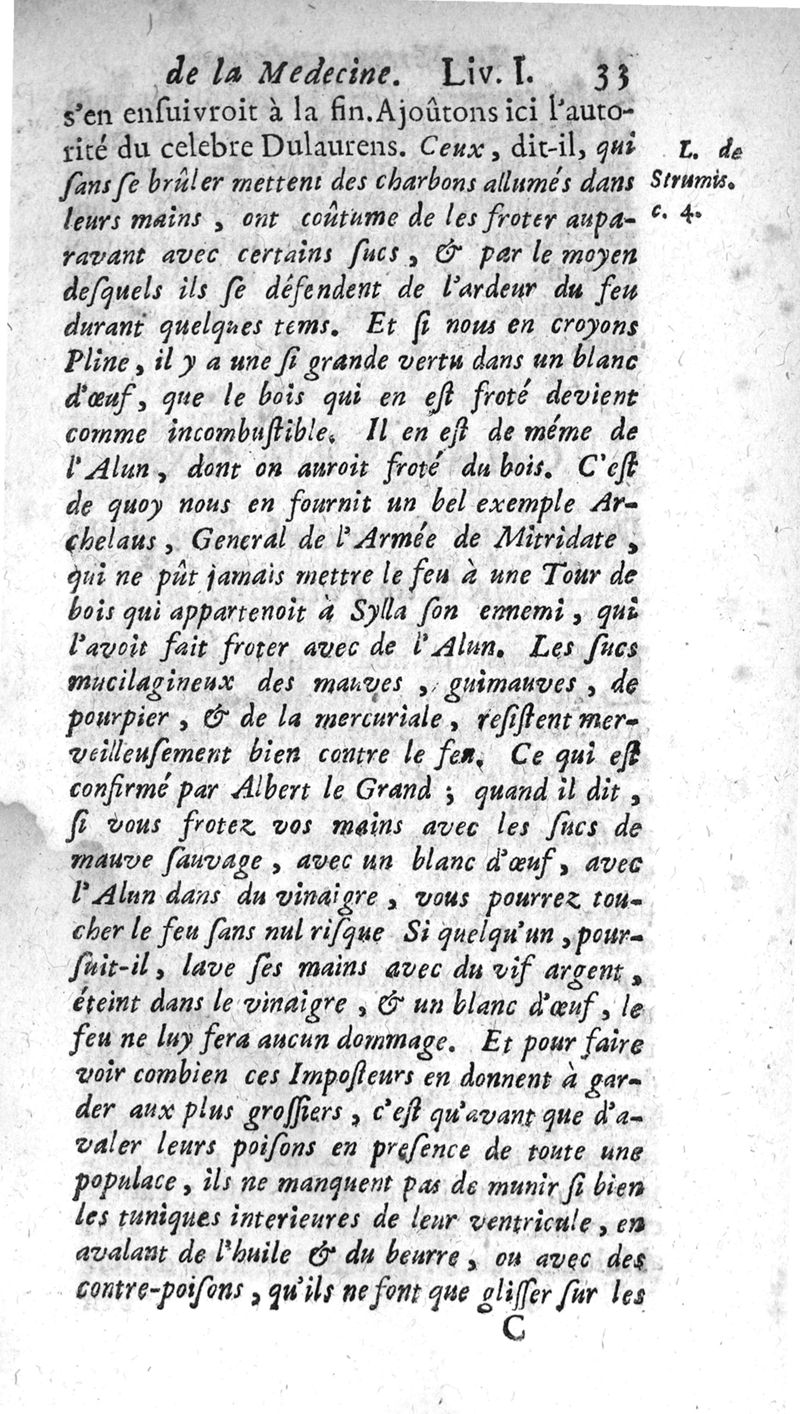 de la Medecine. Liv. I. 33
s'en enſuivroit à la fin. Ajoûtons ici l'auto-
rité du celebre Dulaurens. Ceux, dit-il, qui
ſans ſe brûler mettent des charbons allumés dans
leurs mains, ont coûtume de les froter aupa-
ravant avec certains ſucs, & par le moyen
deſquels ils ſe défendent de l'ardeur du feu
durant quelques tems. Et ſi nous en croyons
Pline, il y a une ſi grande vertu dans un blanc
d'œuf, que le bois qui en eſt froté devient
comme incombuſtible. Il en eſt de méme de
l'Alun, dont on auroit froté du bois. C'eſt
de quoy nous en fournit un bel exemple Ar-
chelaus, General de l'Armée de Mitridate,
qui ne pût jamais mettre le feu à une Tour de
bois qui appartenoit à Sylla ſon ennemi, qui
l'avoit fait froter avec de l'Alun. Les ſucs
mucilagineux des mauves, guimauves, de
pourpier, & de la mercuriale, reſiſtent mer-
veilleuſement bien contre le feu. Ce qui eſt
confirmé par Albert le Grand; quand il dit,
ſi vous frotez vos mains avec les ſucs de
mauve ſauvage, avec un blanc d'œuf, avec
l'Alun dans du vinaigre, vous pourrez tou-
cher le feu ſans nul riſque Si quelqu'un, pour-
ſuit-il, lave ſes mains avec du vif argent,
éteint dans le vinaigre, & un blanc d'œuf, le
feu ne luy fera aucun dommage. Et pour faire
voir combien ces Impoſteurs en donnent à gar-
der aux plus groſſiers, c'eſt qu'avant que d'a-
valer leurs poiſons en preſence de toute une
populace, ils ne manquent pas de munir ſi bien
les tuniques interieures de leur ventricule, en
avalant de l'huile & du beurre, ou avec des
contre-poiſons, qu'ils ne font que gliſſer ſur les
C
L. de
Strumis.
c. 4.